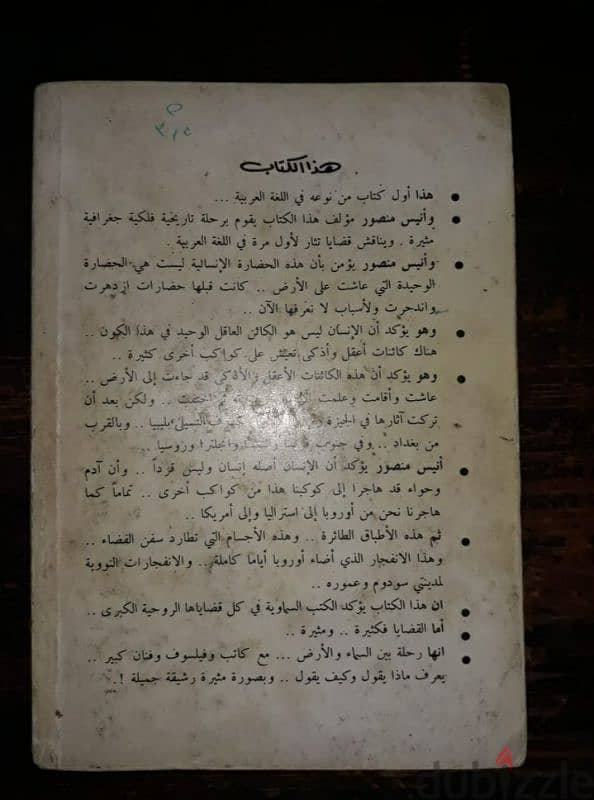 هذا الكتاب
• هذا أول كتاب من نوعه في اللغة العربية ...
• وأنيس منصور مؤلف هذا الكتاب يقوم برحلة تاريخية فلكية جغرافية
مثيرة . ويناقش قضايا تثار لأول مرة في اللغة العربية .
• وأنيس منصور يؤمن بأن هذه الحضارة الإنسانية ليست هي الحضارة
الوحيدة التي عاشت على الأرض .. كانت قبلها حضارات ازدهرت
واندحرت ولأسباب لا نعرفها الآن ..
• وهو يؤكد أن الإنسان ليس هو الكائن العاقل الوحيد في هذا الكون ..
هناك كائنات أعقل وأذكى تعيش على كواكب أخرى كثيرة ..
• وهو يؤكد أن هذه الكائنات الأعقل والأذكى قد جاءت إلى الأرض ..
عاشت وأقامت وعلمت .. ولكن بعد أن
تركت آثارها في الجيزة بليبيا .. وبالقرب
من بغداد .. وفي جنوب وانجلترا وروسيا ..
• أنيس منصور يؤكد أن الإنسان أصله إنسان وليس قرداً .. وأن آدم
وحواء قد هاجرا إلى كوكبنا هذا من كواكب أخرى .. تماماً كما
هاجرنا نحن من أوروبا إلى استراليا وإلى أمريكا ..
• ثم هذه الأطباق الطائرة .. وهذه الأجسام التي تطارد سفن الفضاء ..
وهذا الانفجار الذي أضاء أوروبا أياما كاملة .. والانفجارات النووية
لمدينتي سودوم وعموره ..
• ان هذا الكتاب يؤكد الكتب السماوية في كل قضاياها الروحية الكبرى ..
• أما القضايا فكثيرة .. ومثيرة ..
• انها رحلة بين السماء والأرض ... مع كاتب وفيلسوف وفنان كبير ..
يعرف ماذا يقول وكيف يقول .. وبصورة مثيرة رشيقة جميلة !.
dubizzle